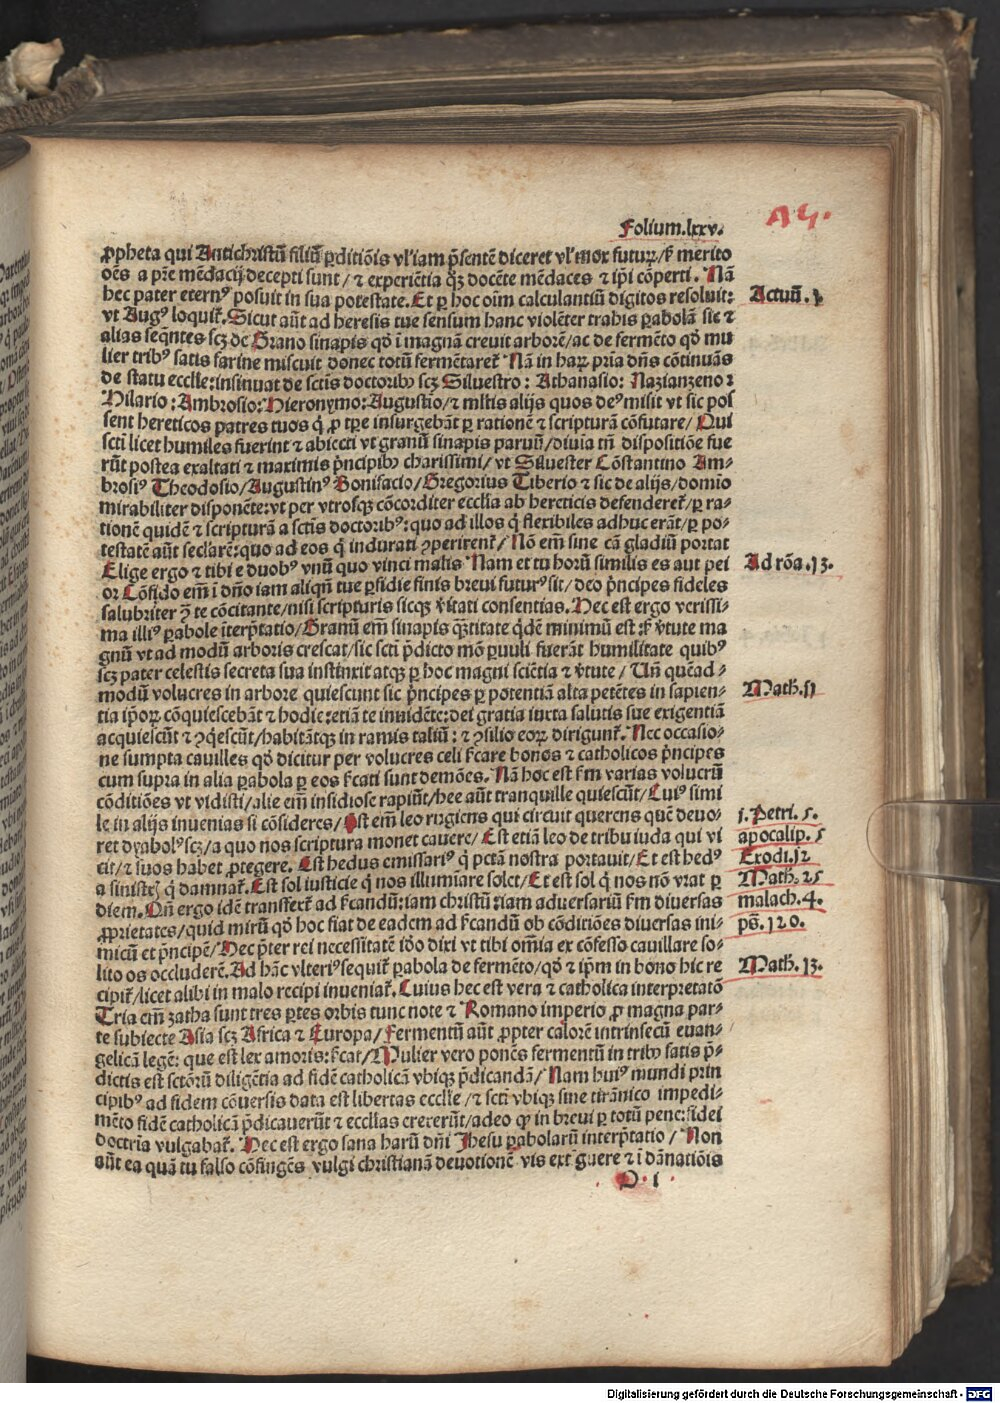 Folium.lxxv.
ꝓpheta qui Antichristū filiū ꝑditiōis vl' iam p̄sentē diceret vl' mox futuꝝ/ꝫ merito
oēs a pr̄e mēdacij decepti sunt/ ⁊ experiētia qꝫ docēte mēdaces ⁊ ip̄i cōperti. Nā
hec pater eternꝰ posuit in sua potestate. Et ꝑ hoc oīm calculantiū digitos resoluit:
Actuū. j.
vt Augꝰ loquit᷑. Sicut aūt ad heresis tue sensum hanc violēter trahis ꝑabolā sic ⁊
alias seq̄ntes scꝫ de Grano sinapis qd̄ ī magnā creuit arborē/ac de fermēto qd̄ mu
lier tribꝰ satis farine miscuit donec totū fermētaret᷑ Nā in haꝝ pria dn̄s cōtinuās
de statu eccl'ie: insinuat de sctīs doctoribꝰ scꝫ Siluestro: Athanasio: Nazianzeno:
Hilario: Ambrosio: Hieronymo: Augustīo/⁊ ml'tis alijs quos deꝰ misit vt sic pos
sent hereticos patres tuos q̇ ꝓ tp̄e insurgebāt ꝑ rationē ⁊ scripturā cōfutare/ Qui
sctī licet humiles fuerint ⁊ abiecti vt granū sinapis paruū/diuīa tn̄ dispositiōe fue
rūt postea exaltati ⁊ maximis p̄ncipibꝰ charissimi/ vt Siluester Cōstantino Am-
brosiꝰ Theodosio/Augustinꝰ Bonifacio/Gregorius Tiberio ⁊ sic de alijs/domīo
mirabiliter disponēte: vt per vtrosqꝫ cōcorditer ecclīa ab hereticis defenderet᷑/ꝑ ra-
tionē quidē ⁊ scripturā a sctīs doctoribꝰ: quo ad illos q̇ flexibiles adhuc erāt/ꝑ po-
testatē aūt seclarē: quo ad eos q̇ indurati ꝯperirent᷑/ Nō em̄ sine cā gladiū portat
Ad rōa. 13.
Elige ergo ⁊ tibi e duobꝰ vnū quo vinci malis Nam et tu horū similis es aut pei
or Cōfido em̄ ī dn̄o iam aliqn̄ tue ꝑfidie finis breui futurꝰ sit/ deo p̄ncipes fideles
salubriter ꝯ̄ te cōcitante/nisi scripturis sicqꝫ v̄itati consentias. Hec est ergo verissi-
ma illiꝰ ꝑabole īterp̄tatio/Granū em̄ sinapis q̄ꝫtitate q̇dē minimū est: sꝫ v̄tute ma
gnū vt ad modū arboris crescat/sic sctī p̄dicto mō ꝑuuli fuerāt humilitate quibꝰ
scꝫ pater celestis secreta sua instinxit atqꝫ ꝑ hoc magni sciētia ⁊ v̄tute/ Un̄ quēad-
Math. 11
modū volucres in arbore quiescunt sic p̄ncipes ꝑ potentiā alta petētes in sapien-
tia ip̄oꝝ cōquiescebāt ⁊ hodie: etiā te inuidēte: dei gratia iuxta salutis sue exigentiā
acquiescūt ⁊ ꝯq̇escūt/habitātqꝫ in ramis taliū: ⁊ ꝯsilio eoꝝ dirigunt᷑. Nec occasio-
ne sumpta cauilles qd̄ dicitur per volucres celi s̄care bonos ⁊ catholicos p̄ncipes
cum supra in alia ꝑabola ꝑ eos s̄cati sunt demōes. Nā hoc est s̄m varias volucrū
cōditiōes vt vidisti/alie em̄ insidiose rapiūt/hee aūt tranquille quiescūt/Cuiꝰ simi
le in alijs inuenias si cōsideres/Est em̄ leo rugiens qui circuit querens quē deuo-
j. Petri. 5.
ret dyabolꝰ scꝫ/a quo nos scriptura monet cauere/ Est etiā leo de tribu iuda qui vi
apocalip. 5
cit/ ⁊ suos habet ꝓtegere. Est hedus emissariꝰ q̇ pctā nostra portauit/ Et est hedꝰ
Exodi. 12
a sinistꝭ q̇ damnat᷑. Est sol iusticie q̇ nos illumīare solet/Et est sol q̇ nos nō vrat ꝑ
Math. 25
diem. Qn̄ ergo idē transfert᷑ ad s̄candū: iam christū: iam aduersariū s̄m diuersas
malach. 4.
ꝓprietates/quid mirū qd̄ hoc fiat de eadem ad s̄candū ob cōditiōes diuersas ini-
ps̄. 120.
micū et p̄ncipē/Hec p̄ter rei necessitatē iō dixi vt tibi om̄ia ex cōfesso cauillare so-
lito os occluderē. Ad hāc vlteriꝰ sequit᷑ ꝑabola de fermēto/qd̄ ⁊ ip̄m in bono hic re
Math. 13.
cipit᷑/licet alibi in malo recipi inueniat᷑. Cuius hec est vera ⁊ catholica interpretatō
Tria em̄ zatha sunt tres ꝑtes orbis tunc note ⁊ Romano imperio ꝓ magna par-
te subiecte Asia scꝫ Africa ⁊ Europa/ Fermentū aūt ꝓpter calorē intrinsecū euan-
gelicā legē: que est lex amoris: s̄cat/Mulier vero ponēs fermentū in tribꝰ satis p̄-
dictis est sctōrū diligētia ad fidē catholicā vbiqꝫ p̄dicandā/ Nam huiꝰ mundi prin
cipibꝰ ad fidem cōuersis data est libertas eccl'ie/⁊ sctī vbiqꝫ sine tirānico impedi-
mēto fidē catholicā p̄dicauerūt ⁊ eccl'ias erexerūt/adeo qꝫ in breui ꝑ totū pene: fidei
doctrīa vulgabat᷑. Hec est ergo sana harū dn̄i Jhesu ꝑabolarū interp̄tatio/ Non
aūt ea quā tu falso cōfingēs vulgi christianā devotionē vis extīguere ⁊ ī dānatiōis
D. 1
Digitalisierung gefördert durch die Deutsche Forschungsgemeinschaft - DFG